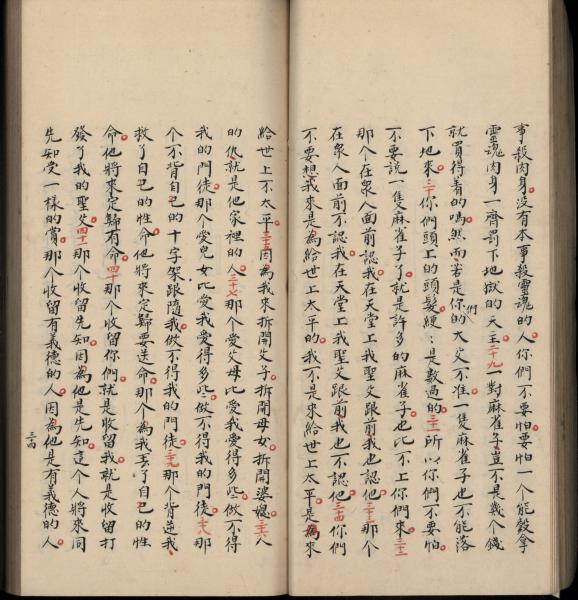 事殺肉身沒有本事殺靈魂的人你們不要怕要怕一个能彀拿
靈魂肉身一齊罰下地獄的天主二十九一對麻雀子豈不是幾个錢
就買得着的嗎然而若是你們的大父不准一隻麻雀子也不能落
下地來三十你們頭上的頭髮縂是數過的三十一所以你們不要怕
不要說一隻麻雀子了就是許多的麻雀子也比不上你們來三十二
那个在衆人面前認我在天堂上我聖父跟前我也認他三十三那个
在衆人面前不認我在天堂上我聖父跟前我也不認他三十四你們
不要想我來是為給世上太平的我不是來給世上太平是為來
給世上不太平三十五因為我來拆開父子拆開母女拆開婆媳三十六人
的仇就是他家裡的人三十七那个愛父母比愛我愛得多些做不得
我的門徒那个愛兒女比愛我愛得多些做不得我的門徒三十八那
个不背自己的十字架跟隨我做不得我的門徒三十九那个背逆我
救了自己的性命他將來定歸要送命那个為我丟了自己的性
命他將來定歸有命四十那个收留你們就是收留我就是收留打
發了我的聖父四十一那个收留先知因為他是先知這个人將來同
先知受一樣的賞那个收留有義德的人因為他是有義德的人
三十四